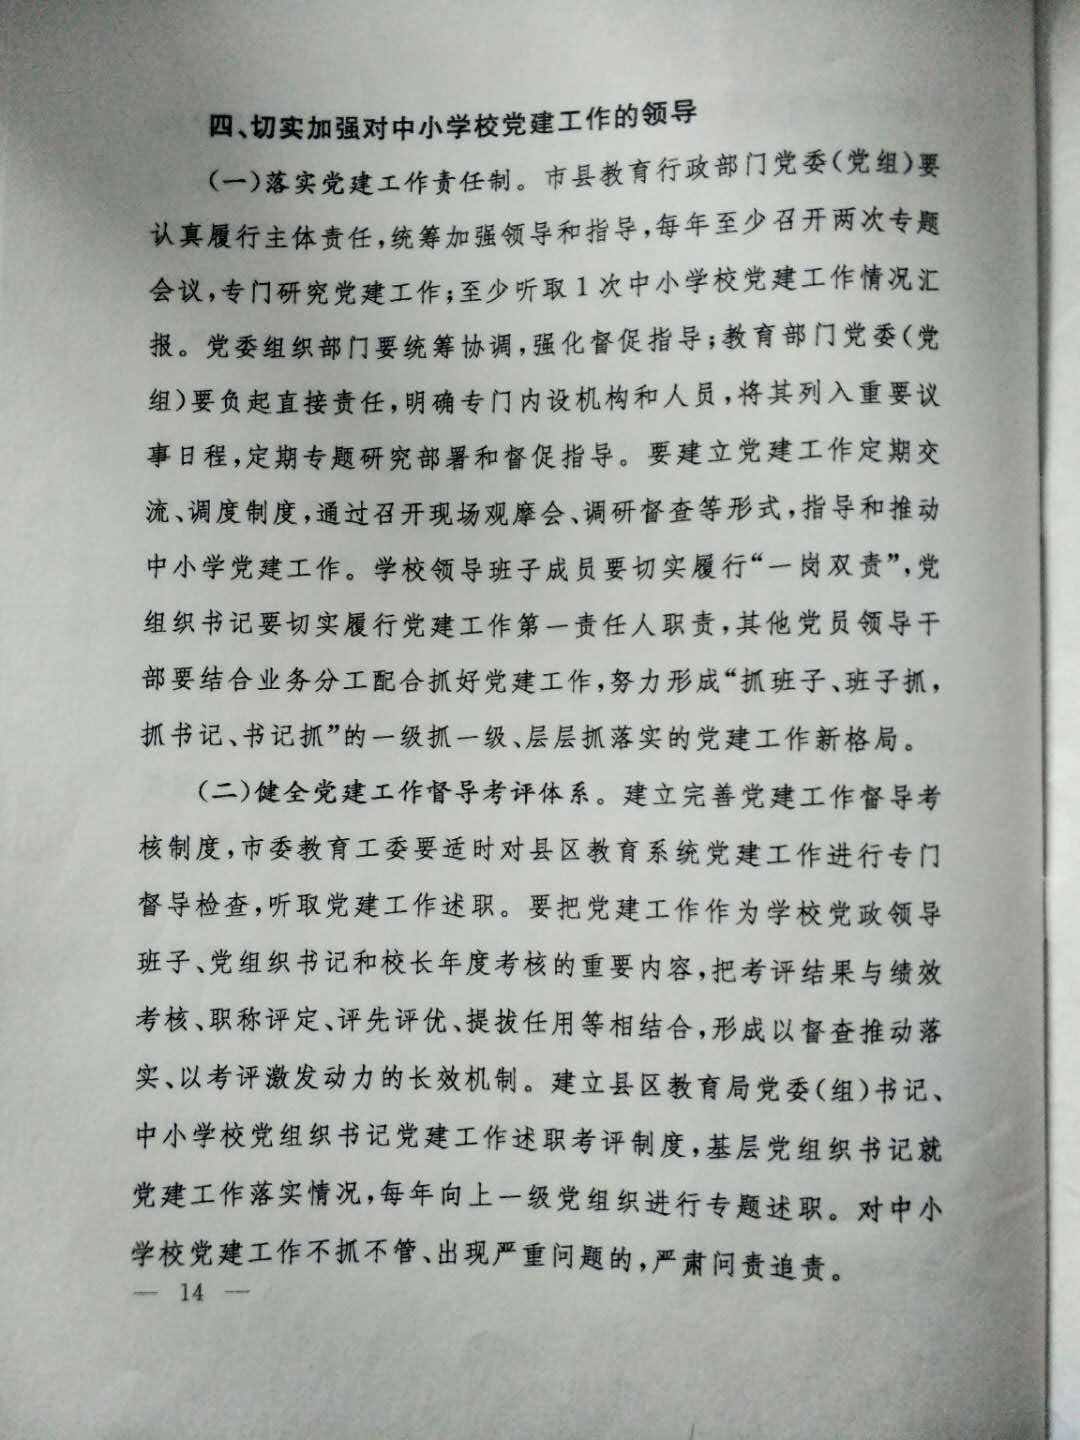 四、切实加强对中小学校党建工作的领导
(一)落实党建工作责任制。市县教育行政部门党委(党组)要
认真履行主体责任,统筹加强领导和指导,每年至少召开两次专题
会议,专门研究党建工作;至少听取1次中小学校党建工作情况汇
报。党委组织部门要统筹协调,强化督促指导;教育部门党委(党
组)要负起直接责任,明确专门内设机构和人员,将其列入重要议
事日程,定期专题研究部署和督促指导。要建立党建工作定期交
流、调度制度,通过召开现场观摩会、调研督查等形式,指导和推动
中小学党建工作。学校领导班子成员要切实履行“一岗双责”,党
组织书记要切实履行党建工作第一责任人职责,其他党员领导干
部要结合业务分工配合抓好党建工作,努力形成“抓班子、班子抓,
抓书记、书记抓”的一级抓一级、层层抓落实的党建工作新格局。
(二)健全党建工作督导考评体系。建立完善党建工作督导考
核制度,市委教育工委要适时对县区教育系统党建工作进行专门
督导检查,听取党建工作述职。要把党建工作作为学校党政领导
班子、党组织书记和校长年度考核的重要内容,把考评结果与绩效
考核、职称评定、评先评优、提拔任用等相结合,形成以督查推动落
实、以考评激发动力的长效机制。建立县区教育局党委(组)书记、
中小学校党组织书记党建工作述职考评制度,基层党组织书记就
党建工作落实情况,每年向上一级党组织进行专题述职。对中小
学校党建工作不抓不管、出现严重问题的,严肃问责追责。
— 14 —